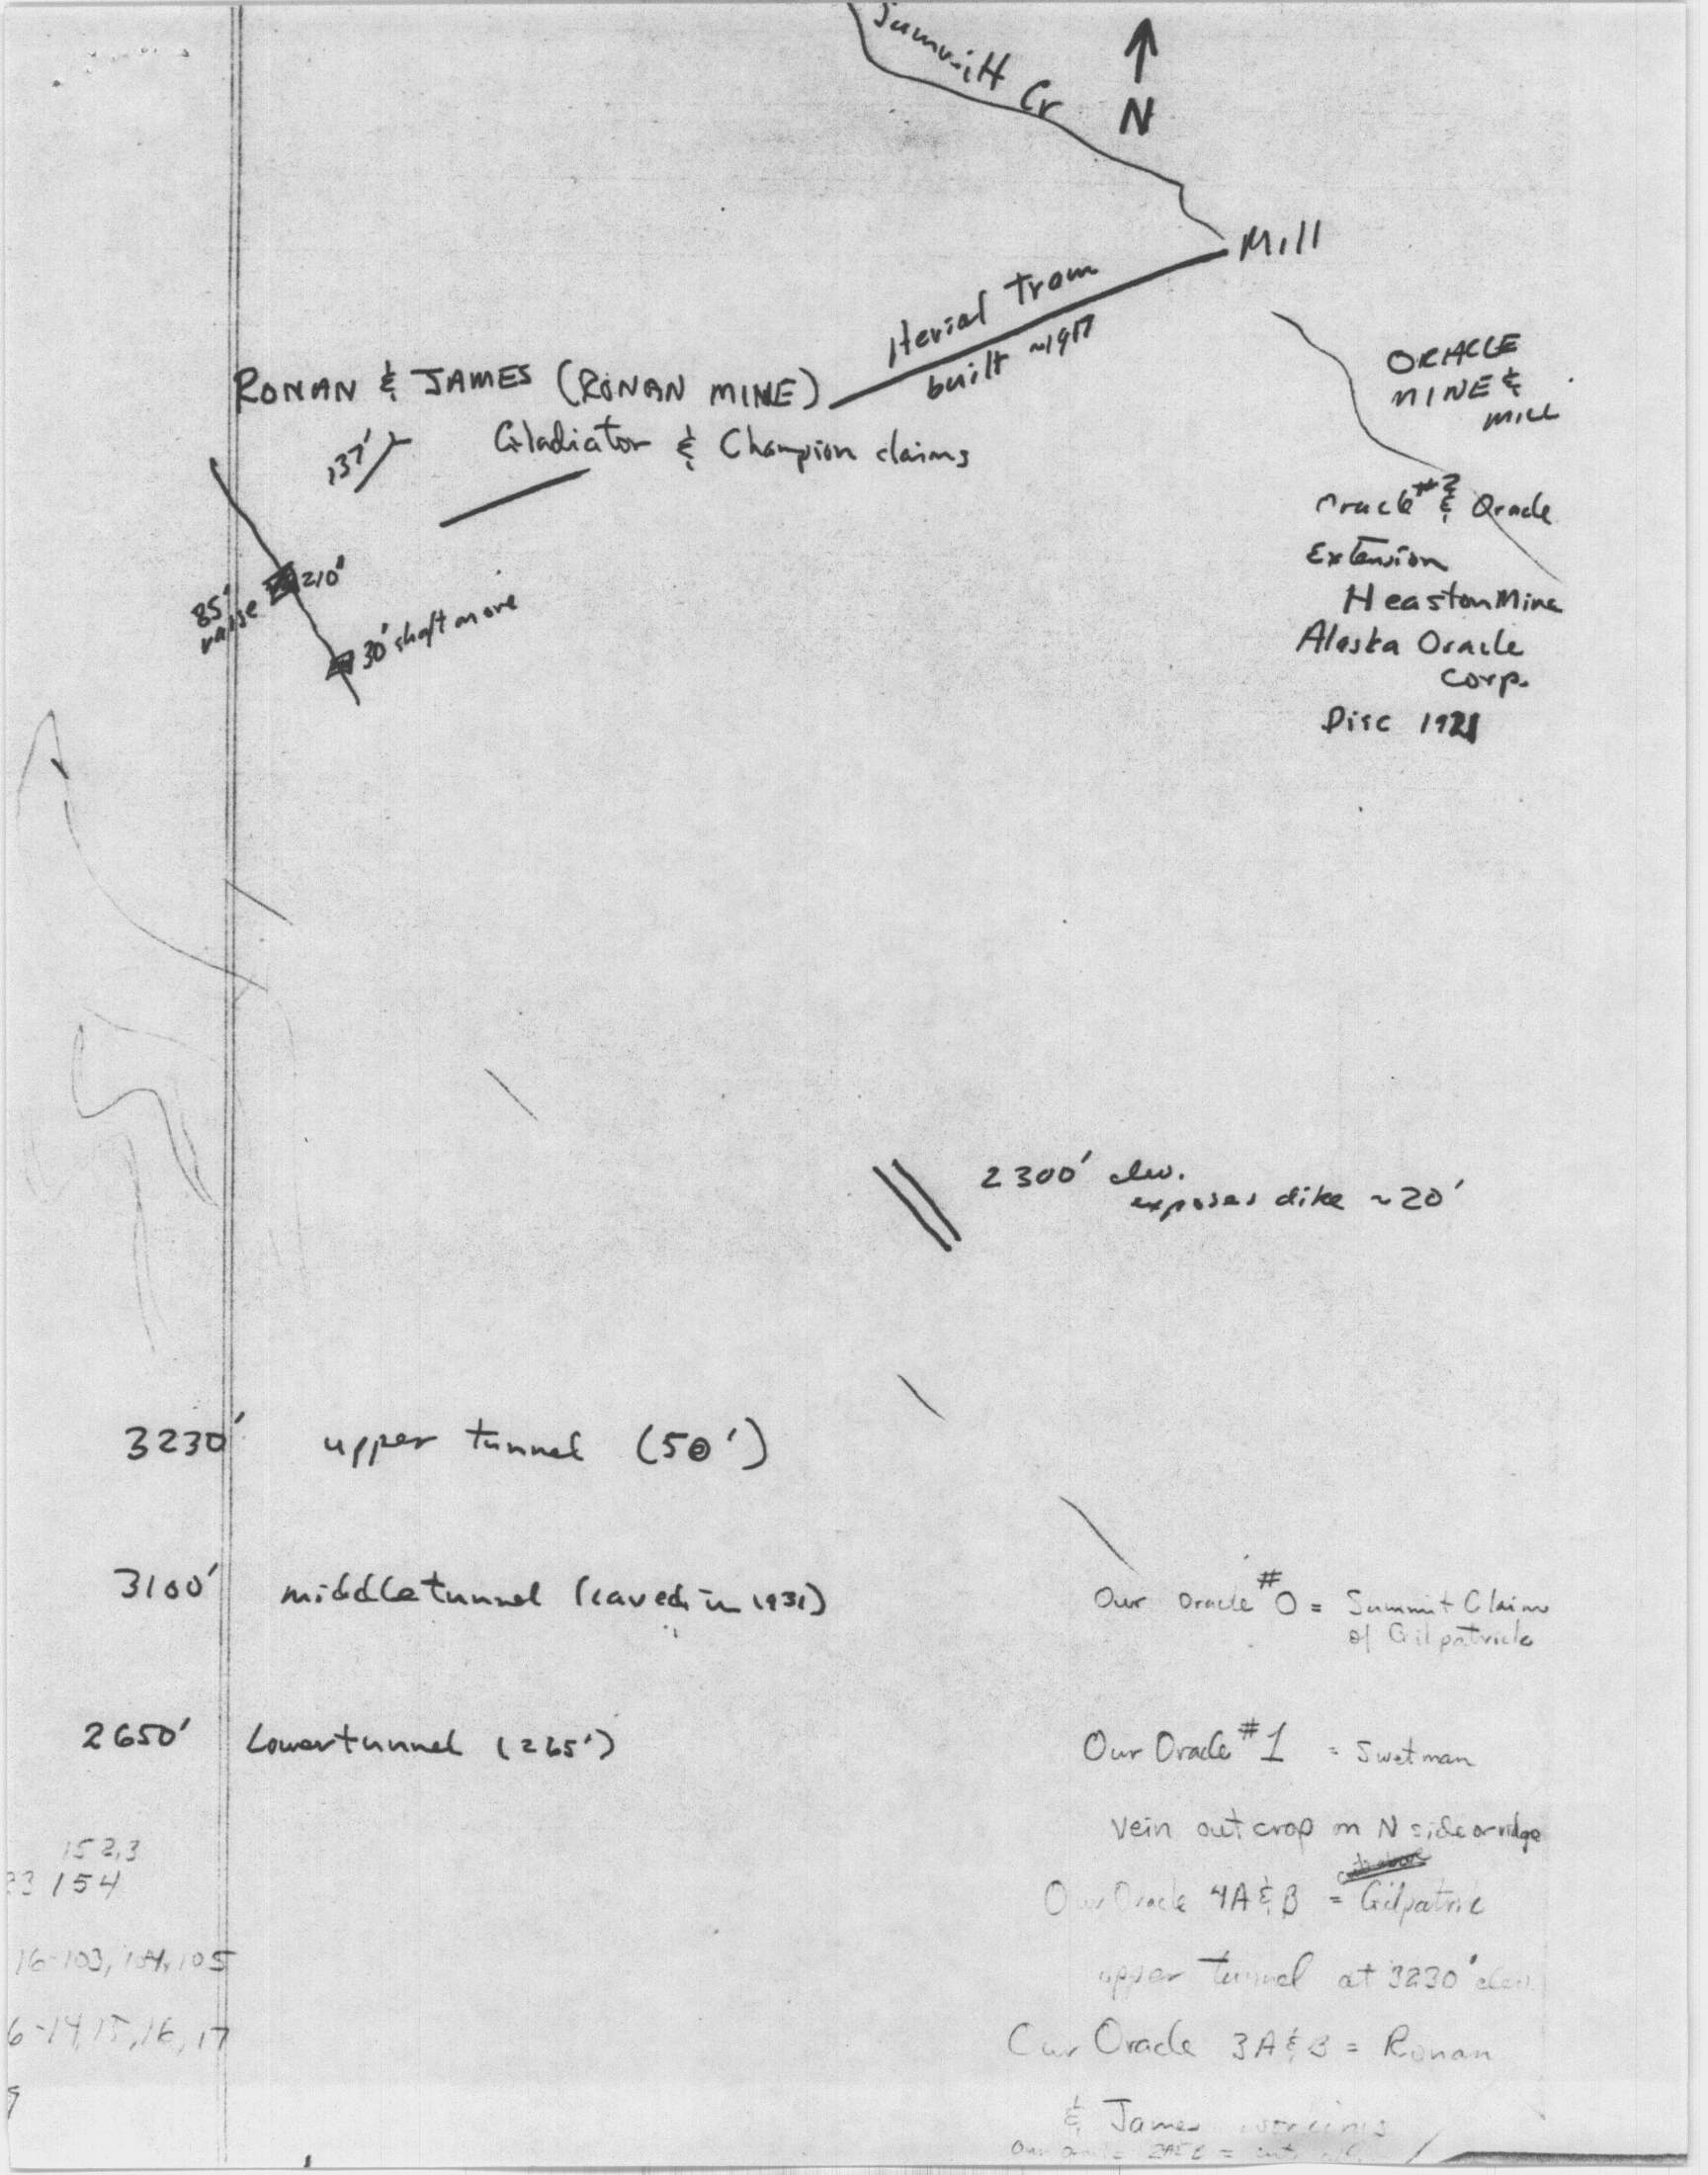 Summitt Cr
N
Mill
Aerial Tram
built ~1917
ORACLE
MINE &
MILL
RONAN & JAMES (RONAN MINE)
137'
Gladiator & Champion claims
Oracle #2 & Oracle
Extension
Heaston Mine
Alaska Oracle
Corp.
Disc 1921
210'
85'
raise
30' shaft on ore
2300' elev.
exposes dike ~20'
3230' upper tunnel (50')
3100' middle tunnel (caved in 1931)
Our Oracle #0 = Summit Claim
of Gilpatrick
2650' Lower tunnel (265')
Our Oracle #1 = Swetman
Vein outcrop on N side or ridge
152,3
154
Our Oracle 4A & B = Gilpatric
upper tunnel at 3230' elev.
16-103, 104, 105
6-14, 15, 16, 17
Our Oracle 3A & B = Ronan
& James workings